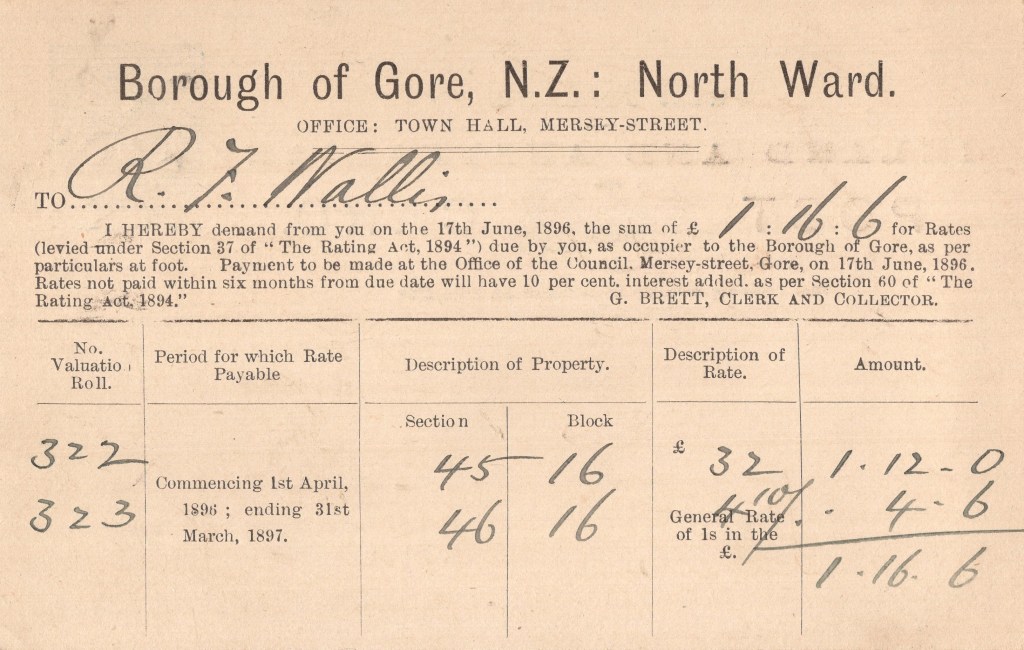 Borough of Gore, N.Z.: North Ward.
OFFICE: TOWN HALL, MERSEY-STREET.
TO R. F. Wallis
I HEREBY demand from you on the 17th June, 1896, the sum of £ 1 : 16 : 6 for Rates
(levied under Section 37 of "The Rating Act, 1894") due by you, as occupier to the Borough of Gore, as per
particulars at foot. Payment to be made at the Office of the Council, Mersey-street, Gore, on 17th June, 1896.
Rates not paid within six months from due date will have 10 per cent. interest added, as per Section 60 of "The
Rating Act, 1894." G. BRETT, CLERK AND COLLECTOR.
No. Valuatio Roll.
Period for which Rate Payable
Description of Property.
Description of Rate.
Amount.
Section Block
322 45 16 £ 32 1 . 12 - 0
Commencing 1st April,
1896 ; ending 31st
March, 1897.
323 46 16 4 10/ . 4 - 6
General Rate
of 1s in the
£.
1 . 16 . 6